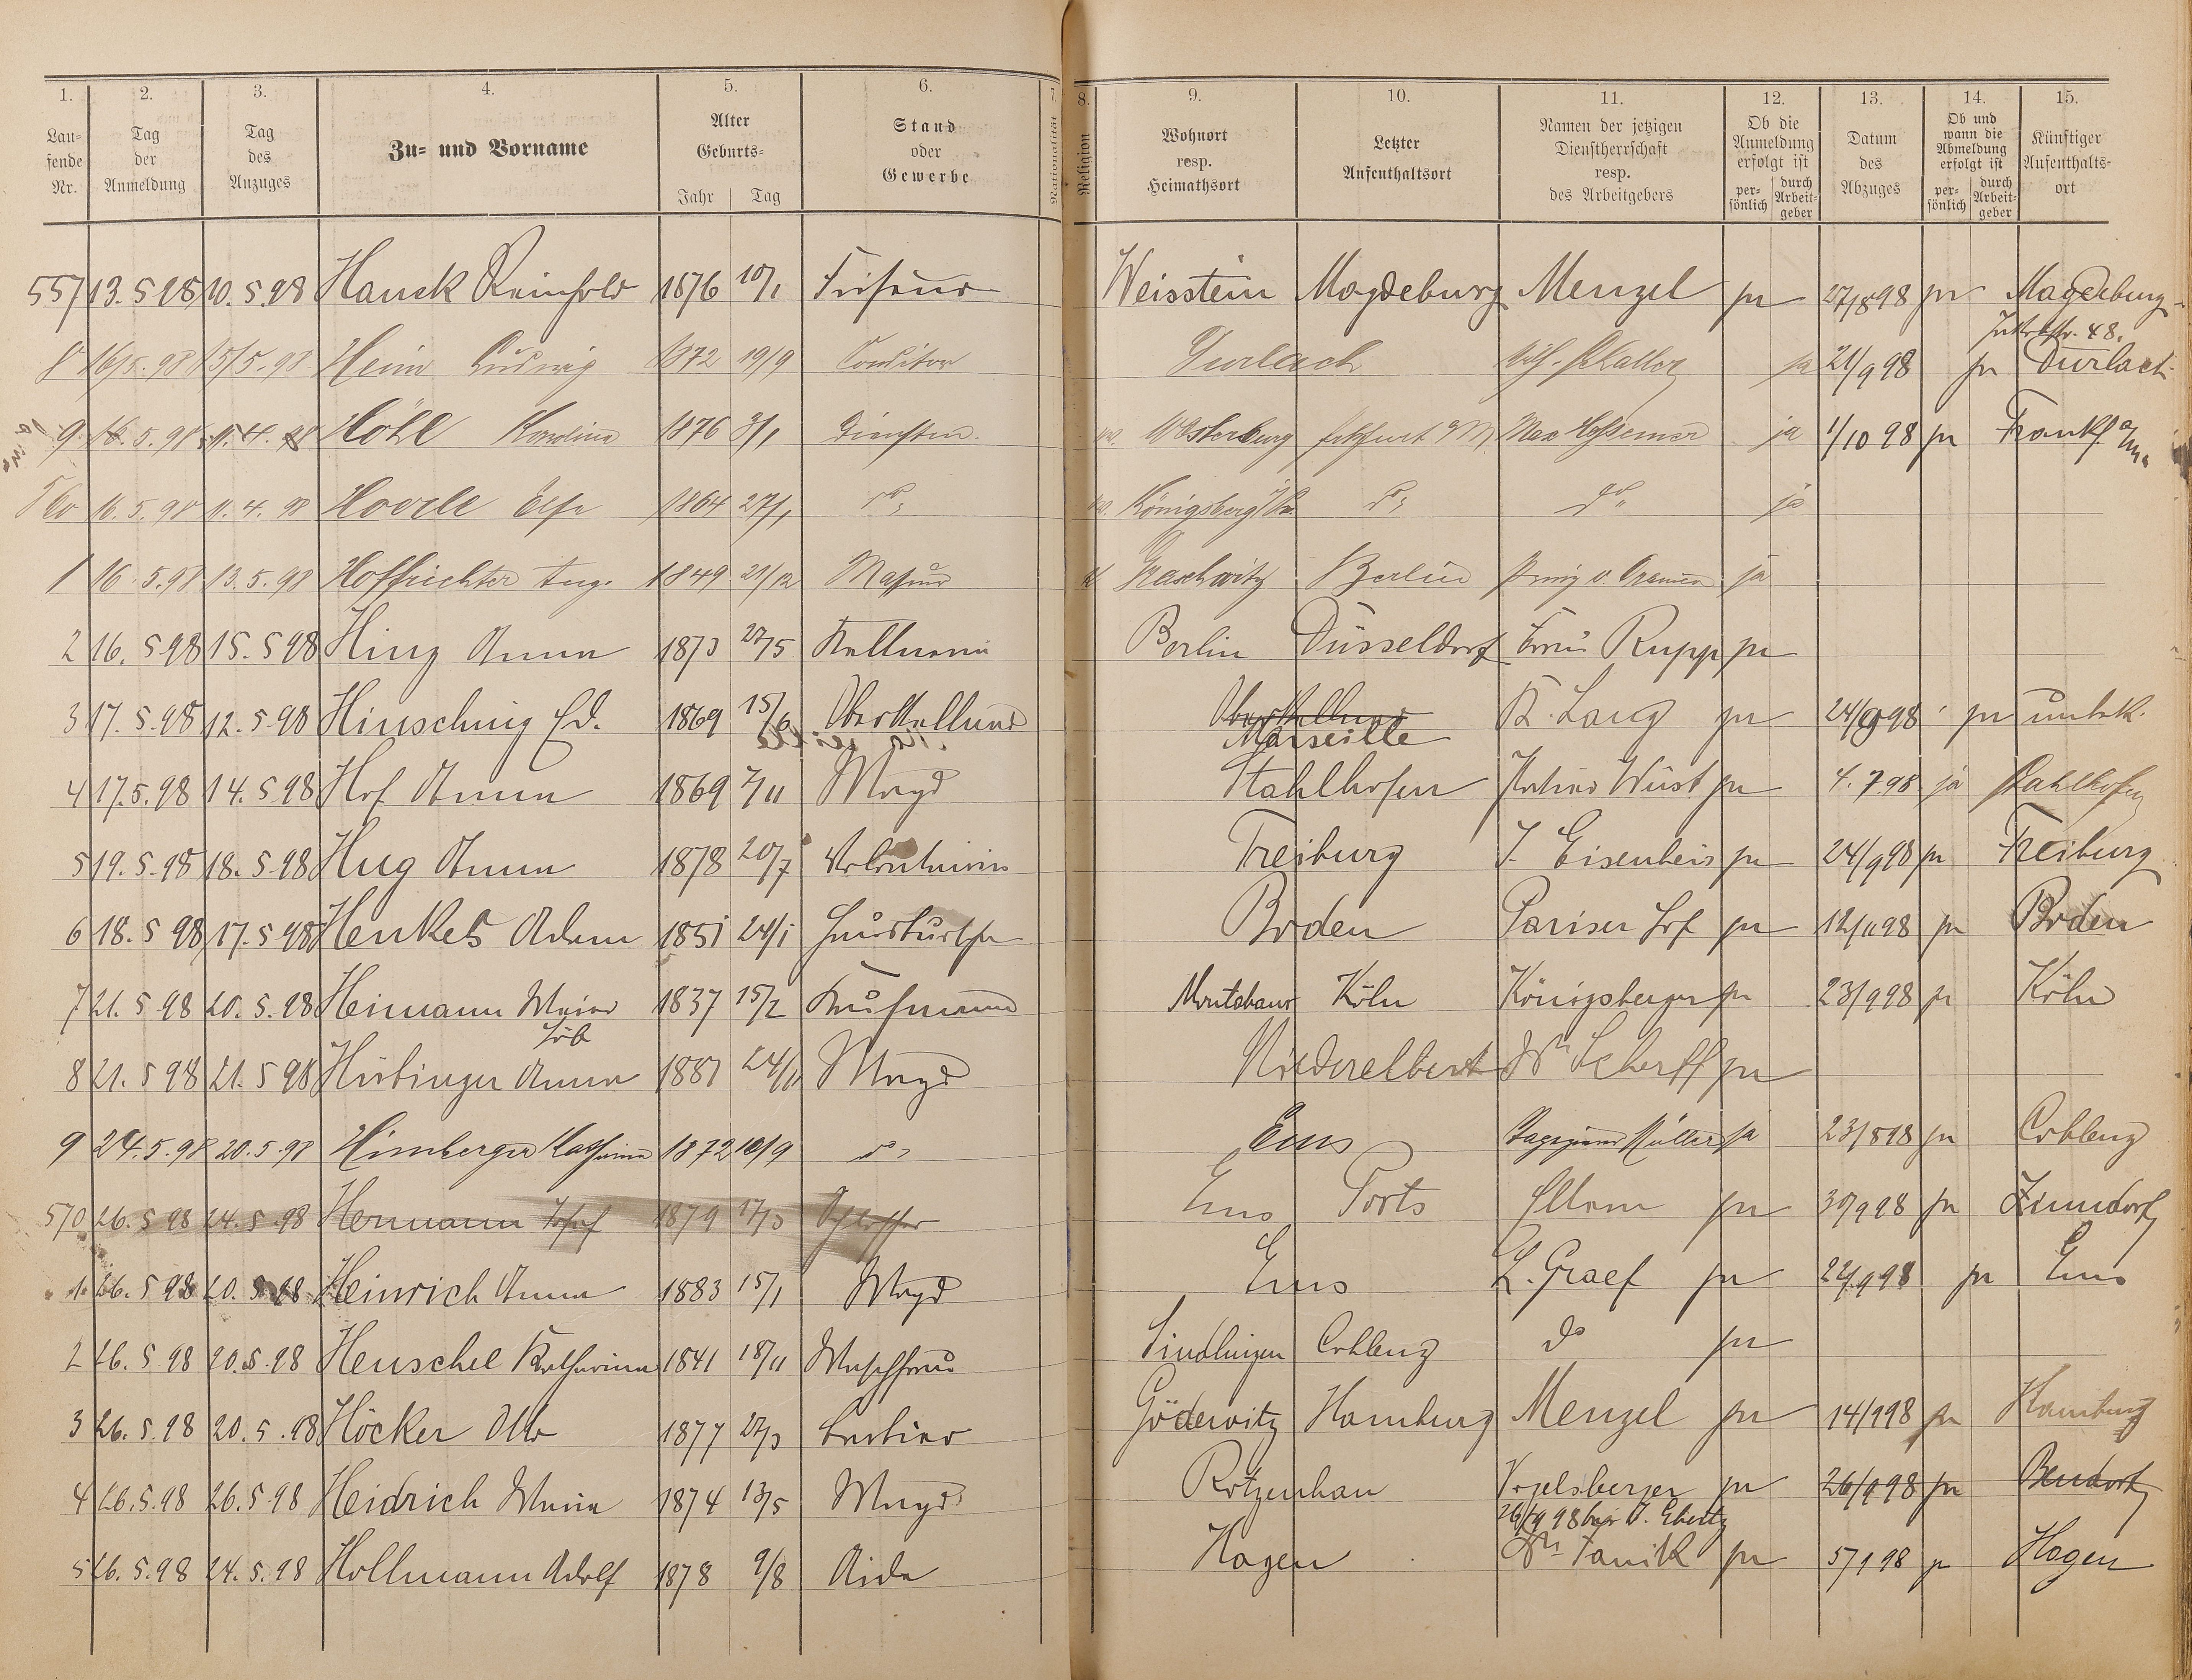 1. 2. 3. 4. 5. 6. 7. 8. 9. 10. 11. 12. 13. 14. 15.
Lau=fende Nr. Tag der Anmeldung Tag des Anzuges Zu= und Vorname Alter Geburts= Jahr Tag Stand oder Gewerbe Nationalität Religion Wohnort resp. Heimathsort Letzter Aufenthaltsort Namen der jetzigen Dienstherrschaft resp. des Arbeitgebers Ob die Anmeldung erfolgt ist per=sönlich durch Arbeit=geber Datum des Abzuges Ob und wann die Abmeldung erfolgt ist per=sönlich durch Arbeit=geber Künftiger Aufenthalts=ort
557 13. 5 98 10. 5. 98 Hauck Reinhold 1876 10/1 Friseur Weisstein Magdeburg Menzel ja 27/8 98 ja Magdeburg
8 16/5. 98 15/5. 98 Heim Ludwig 1872 19/9 Conditor Durlach ja 21/9 98 ja Durlach
9 16. 5. 98 11. 4. 98 Höhl Karolina 1876 3/1 Westerburg Max ja 1/10 98 ja Frankf. a/m
560 16. 5. 98 11. 4. 98 1864 27/1 do Königsberg do do ja
1 16. 5. 98 13. 5. 98 Hoffrichter Aug. 1849 21/12 Masseur Berlin ja
2 16. 5 98 15. 5 98 Hinz Anna 1873 27/5 Kellnerin Berlin Düsseldorf Rupp ja
3 17. 5. 98 12. 5. 98 Hinsching Ed. 1869 15/6 Oberkellner Oberkellner K. Lang ja 24/9 98 ja unbek.
Marseille
4 17. 5. 98 14. 5 98 Hof Anna 1869 7/11 Magd Stahlhofen Wüst ja 4. 7. 98 ja Stahlhofen
5 19. 5. 98 18. 5. 98 Hug Anna 1878 20/7 Freiburg J. Eisenbeis ja 24/9 98 ja Freiburg
6 18. 5 98 17. 5 98 Henkels Adam 1851 24/1 Hausbursche Boden Pariser Hof ja 12/11 98 ja Boden
7 21. 5 98 20. 5. 98 Heimann Maier 1837 15/2 Kaufmann Montabaur Köln Königsberger ja 23/9 98 ja Köln
Löb
8 21. 5 98 21. 5 98 Hübinger Anna 1881 24/11 Magd Niederelbert Scherff ja
9 24. 5. 98 20. 5. 98 Himberger Katharina 1872 10/9 do Ems Müller ja 23/8 98 ja Coblenz
570 26. 5 98 24. 5. 98 Hermann Josef 1879 17/3 Schlosser Ems Ports ja 30/9 98 ja Zirndorf
1. 26. 5 98 20. 5 98 Heinrich Anna 1883 15/1 Magd Ems L. Graef ja 22/9 98 ja Ems
2 26. 5 98 20. 5. 98 Henschel Katharina 1841 18/11 Waschfrau Sindlingen Coblenz do ja
3 26. 5. 98 20. 5. 98 Höcker Otto 1877 27/3 Barbier Göderwitz Hamburg Menzel ja 14/9 98 ja Hamburg
4 26. 5. 98 26. 5. 98 Heidrich Maria 1874 13/5 Magd Rotzenhan Vogelsberger ja 26/9 98 ja Bendorf
26/9 98 bei J. Ebertz
5 26. 5. 98 24. 5. 98 Hollmann Adolf 1878 9/8 Hagen ja 5/9 98 ja Hagen